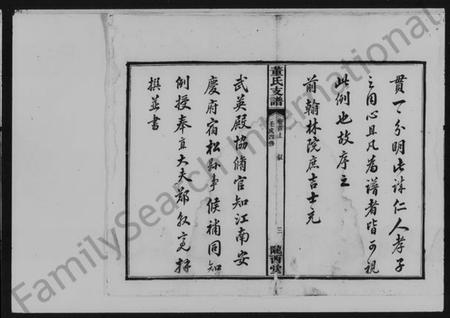 貫一分明此誠仁人孝子
之用心且凡為譜者皆可視
此例也故序之
前翰林院庶吉士充
董氏支譜
卷首上 敘
三
隴西堂
武英殿協脩官知江南安
慶府宿松縣事候補同知
例授奉直大夫鄔
撰並書
FamilySearch International